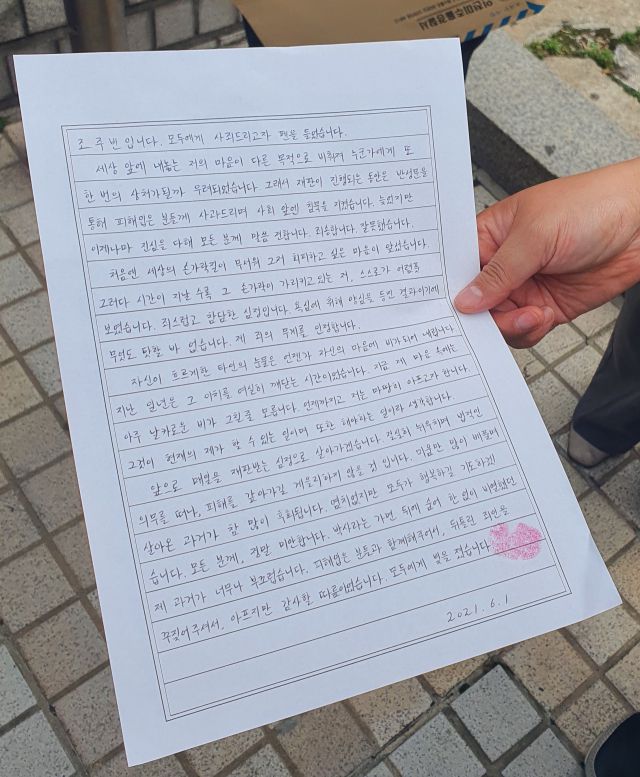 조주빈입니다. 모두에게 사죄드리고자 펜을 들었습니다.
세상 앞에 내놓는 저의 마음이 다른 목적으로 비춰져 누군가에게 또
한 번의 상처가될까 우려되었습니다. 그래서 재판이 진행되는 동안은 반성문을
통해 피해입은 분들께 사과드리며 사회 앞엔 침묵을 지켰습니다. 늦었지만
이제나마 진심을 다해 모든 분께 말씀 전합니다. 죄송합니다. 잘못했습니다.
처음엔 세상의 손가락질이 무서워 그저 회피하고 싶은 마음이 앞섰습니다.
그러다 시간이 지날 수록 그 손가락이 가리키고있는 저, 스스로가 이렇듯
보였습니다. 죄스럽고 참담한 심정입니다. 욕심에 취해 양심을 등진 결과이기에
무엇도 탓할 바 없습니다. 제 죄의 무게를 인정합니다.
자신이 흐르게한 타인의 눈물은 언젠가 자신의 마음에 비가되어 내립니다
지난 일년은 그 이치를 여실히 깨닫는 시간이었습니다. 지금 제 마음 속에는
아주 날카로운 비가 그칠줄 모릅니다. 언제까지고 저는 마땅히 아프고자 합니다.
그것이 현재의 제가 할 수 있는 일이며 또한 해야하는 일이라 생각합니다.
앞으로 매일을 재판받는 심정으로 살아가겠습니다. 갈실히 뉘우치며 법적인
의무를 떠나, 피해를 갚아가길 게을리하지 않을 것 입니다. 미움만 많이 베풀며
살아온 과거가 참 많이 후회됩니다. 염치없지만 모두가 행복하길 기도하겠
습니다. 모든 분께, 정말 미안합니다. 박사라는 가면 뒤에 숨어 한 없이 비열했던
제 과거가 너무나 부끄럽습니다. 피해입은 분들과 함께해주어서, 뒤틀린 죄인을
꾸짖어주셔서, 아프지만 감사할 따름이었습니다. 모두에게 빚을 졌습니다.
2021. 6. 1